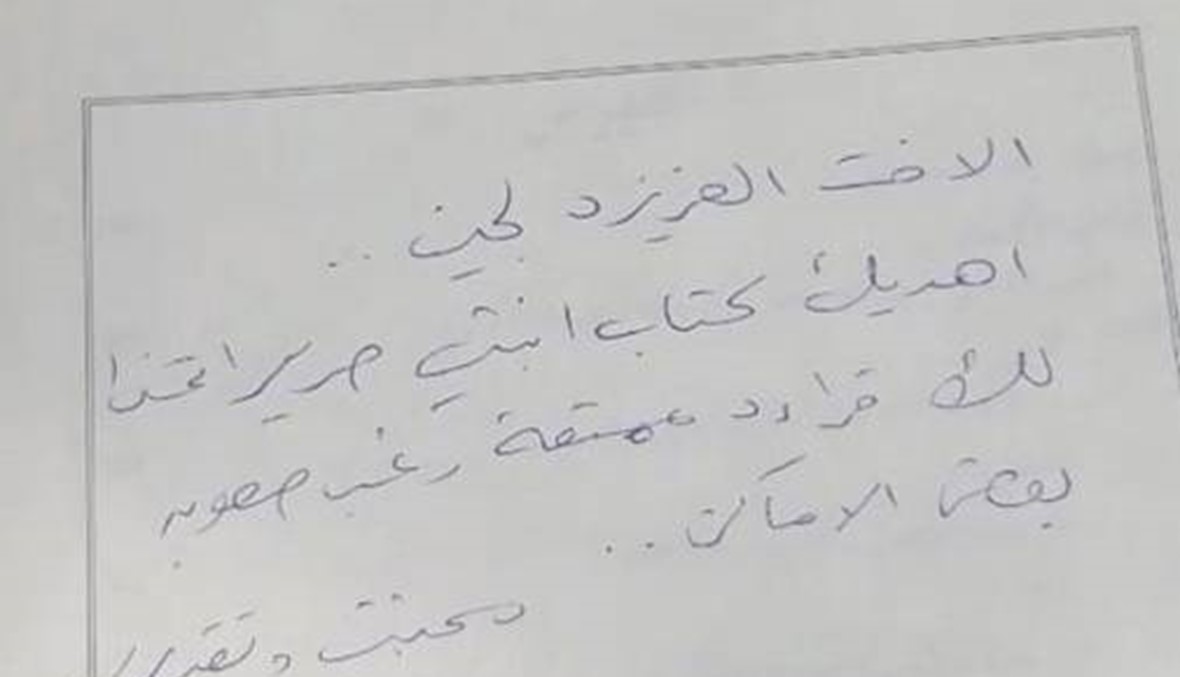 الاخت العزيزة لجين ..
اهديك كتاب ابنتي حرير اتمنا
لك قراءة ممتعة رغم صعوبة
بعض الاماكن ..
محبتي وتقديري